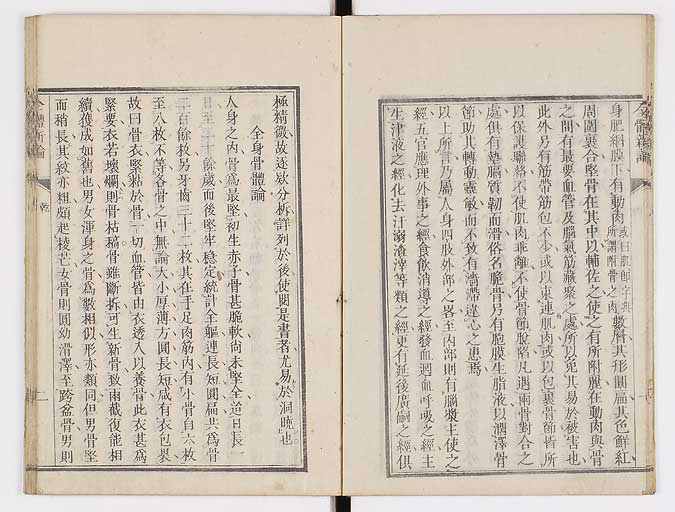 全體新論
身肥網膜下有動肉或曰肌即字典所謂附骨之肉數層其形圓扁其色鮮紅
周圍裹合堅骨在其中以輔佐之使之有所附麗在動肉與骨
之間有最要血管及腦氣筋藏聚之處所以免其易於被害也
此外另有筋帶筋包不少或以束連肌肉或以包裹骨節皆所
以保護聯絡不使肌肉乖離不使骨節脫陷凡遇兩骨對合之
處俱有墊膈質韌而滑俗名脆骨另有胞膜生脂液以潤澤骨
節助其轉動靈敏而不致有濇滯違心之患焉
以上所言乃屬人身四肢外部之畧至內部則有腦漿主使之
經五官應理外事之經飲食消導之經發血迴血呼吸之經主
生津液之經化去汗溺渣滓等類之經更有延後廣嗣之經俱
極精微故逐欵分柝詳列於後使閱是書者尤易於洞曉也
全身骨體論
人身之內骨爲最堅初生赤子骨甚脆軟尚未堅全迨日長一
日至二十餘歲而後堅牢穩定統計全軀連長短圓扁共爲骨
二百餘枚另牙齒三十二枚其在手足肉筋內有小骨自六枚
至八枚不等各骨之中無論大小厚薄方圓長短咸有衣包裹
故曰骨衣緊黏於骨一切血管皆由衣透入以養骨此衣甚爲
緊要衣若壞爛則骨枯稿骨雖斷拆可生新骨致兩截復能相
續獲成如舊也男女渾身之骨爲數相似形亦類同但男骨堅
而稍長其紋亦粗頗起棱芒女骨則圓幼滑澤至跨盆骨男則
全體新論
乾
二